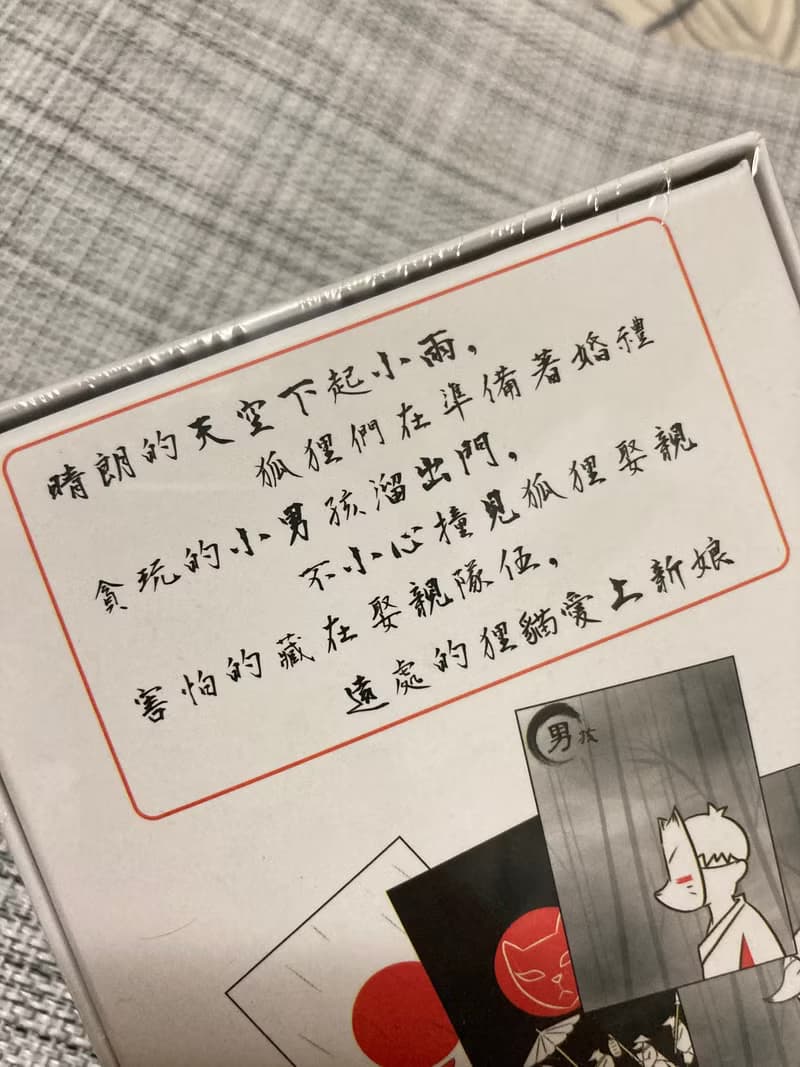 晴朗的天空下起小雨，
狐狸們在準備著婚禮
貪玩的小男孩溜出門，
不小心撞見狐狸娶親
害怕的藏在娶親隊伍，
遠處的狸貓愛上新娘
男孩